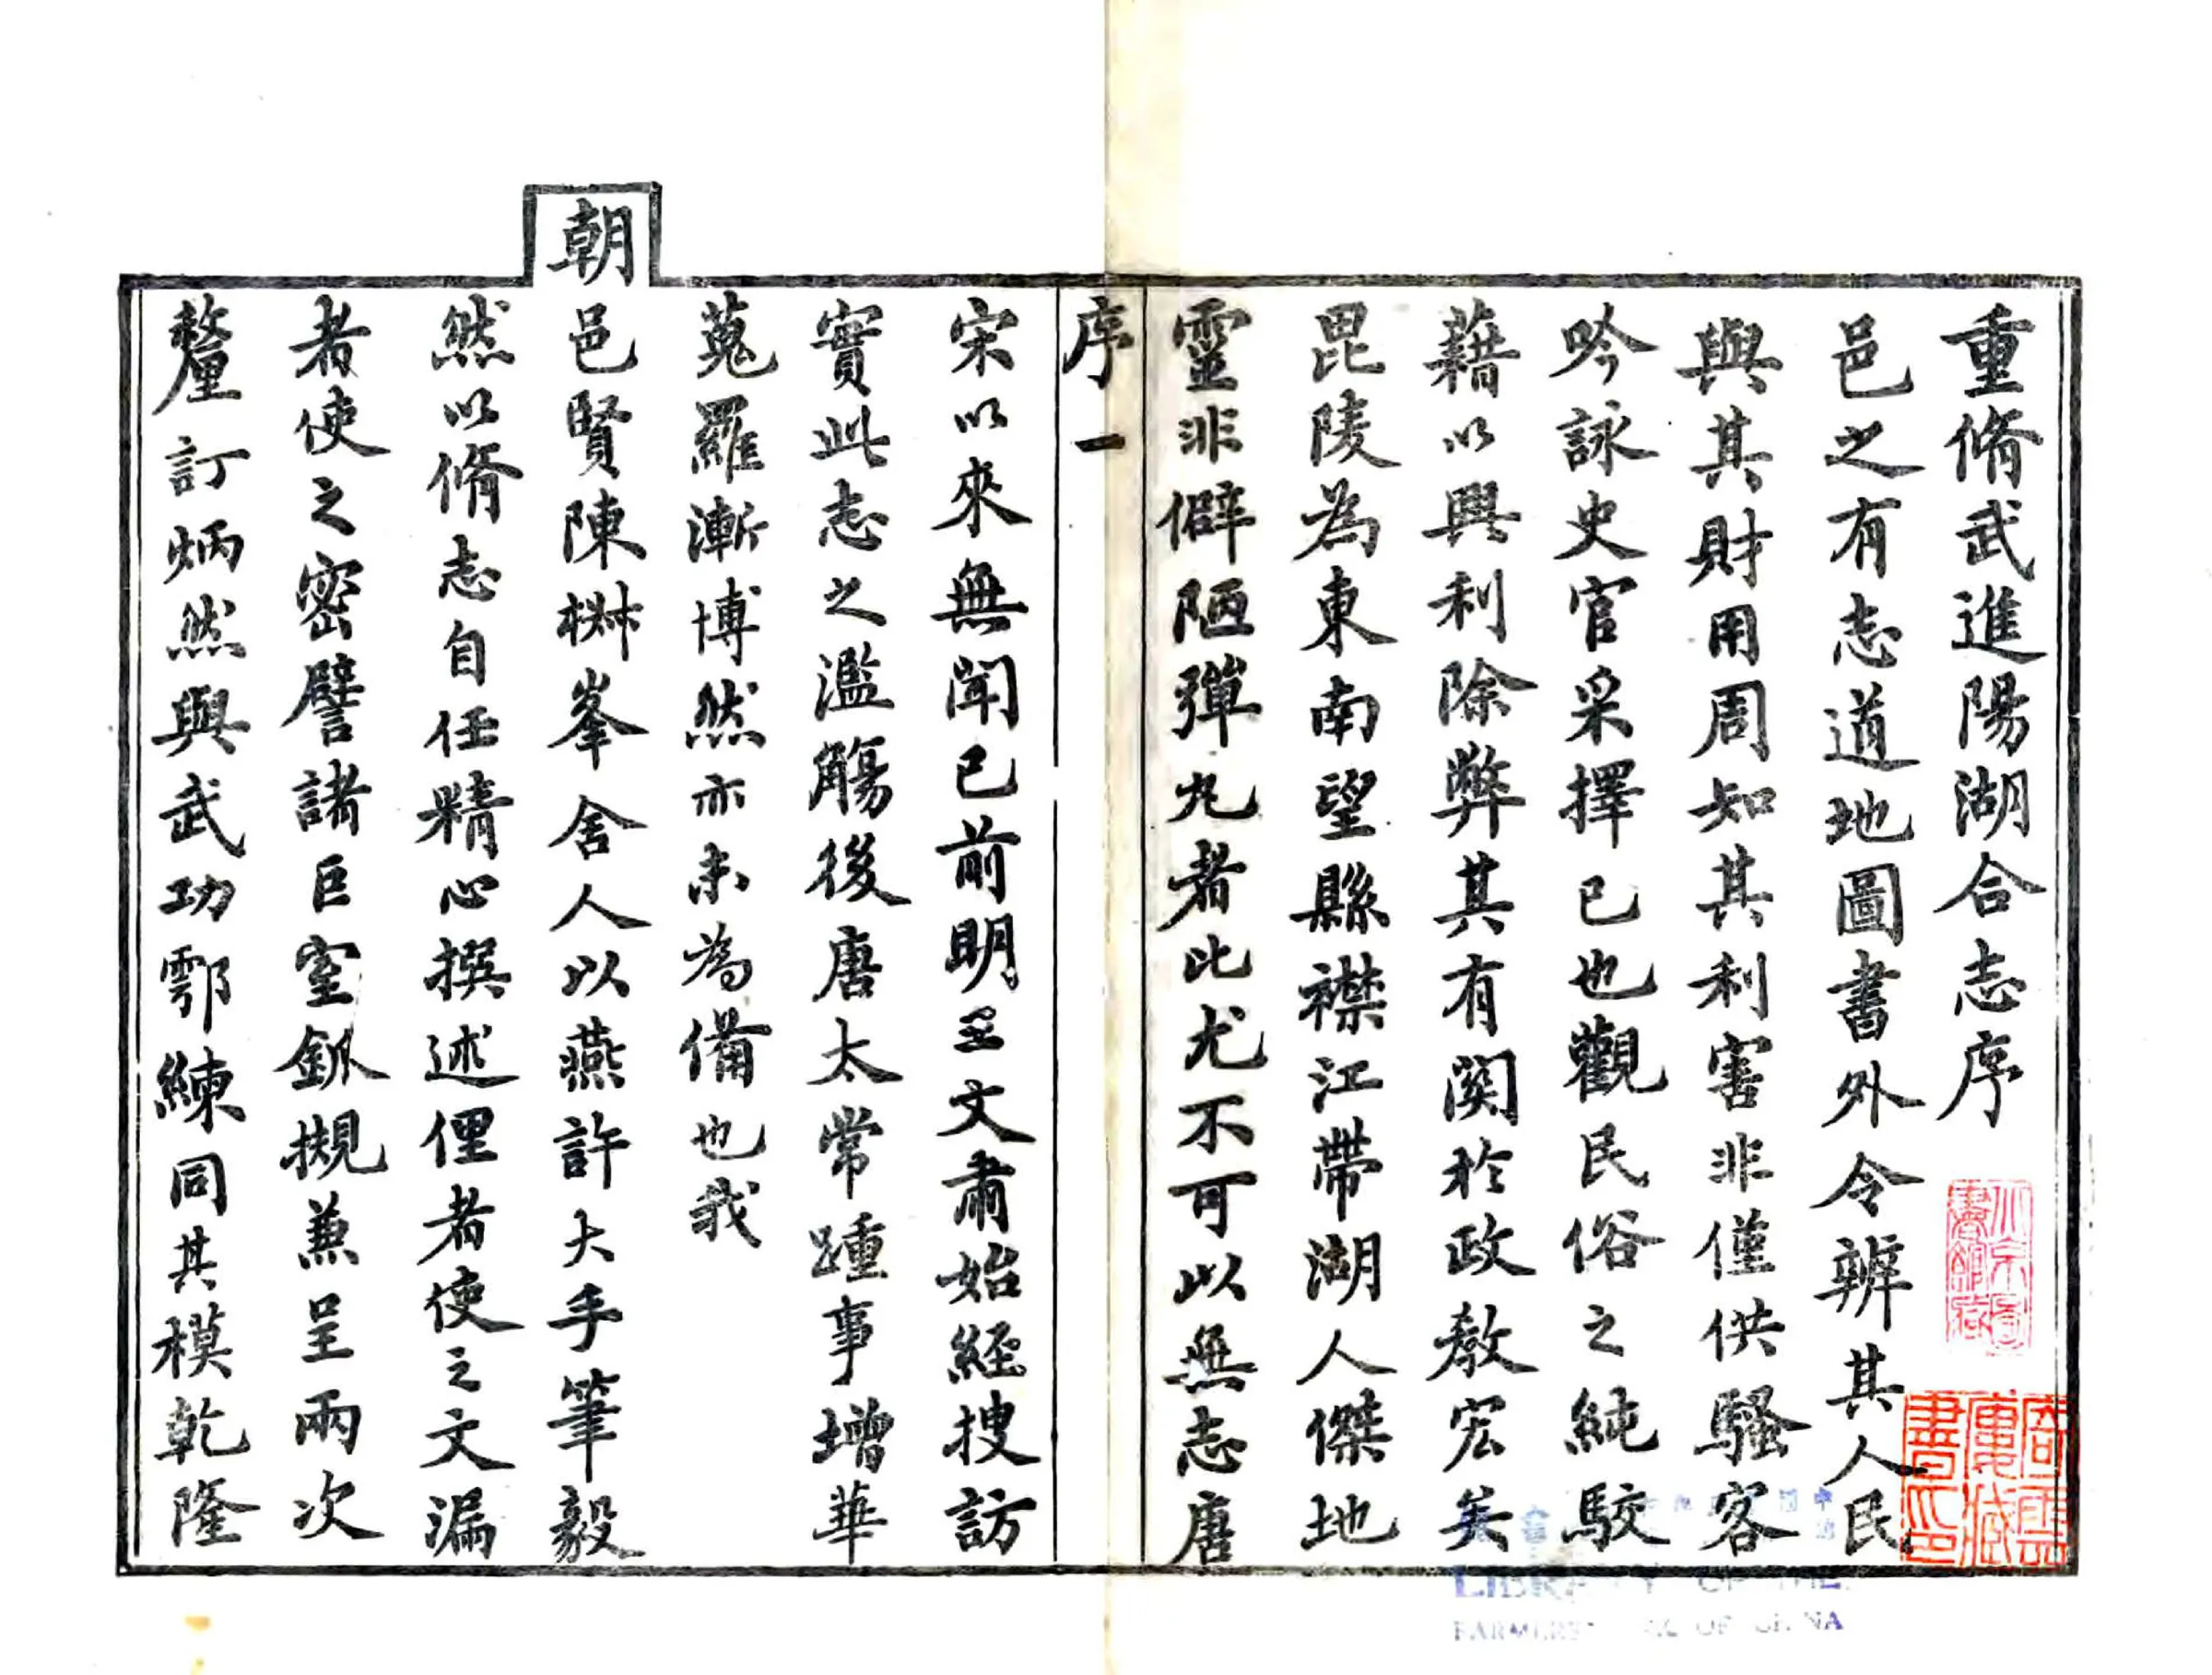 重脩武進陽湖合志序
邑之有志道地圖書外令辨其人民
與其財用周知其利害非僅供騷客
吟詠史官采擇已也觀民俗之純駮
藉以興利除弊其有関於政教宏矣
毘陵為東南望縣襟江帶湖人傑地
靈非僻陋彈丸者比尤不可以無志唐
序一
宋以來無聞已前明王文肅始經搜訪
實此志之濫觴後唐太常踵事增華
蒐羅漸博然亦未為備也我
朝邑賢陳樹峯舍人以燕許大手筆毅
然以脩志自任精心撰述俚者使之文漏
者使之密譬諸巨室鈲摫兼呈兩次
釐訂炳然與武功鄠練同其模乾隆
LIBRARY OF THE
FARMERS OF CHINA